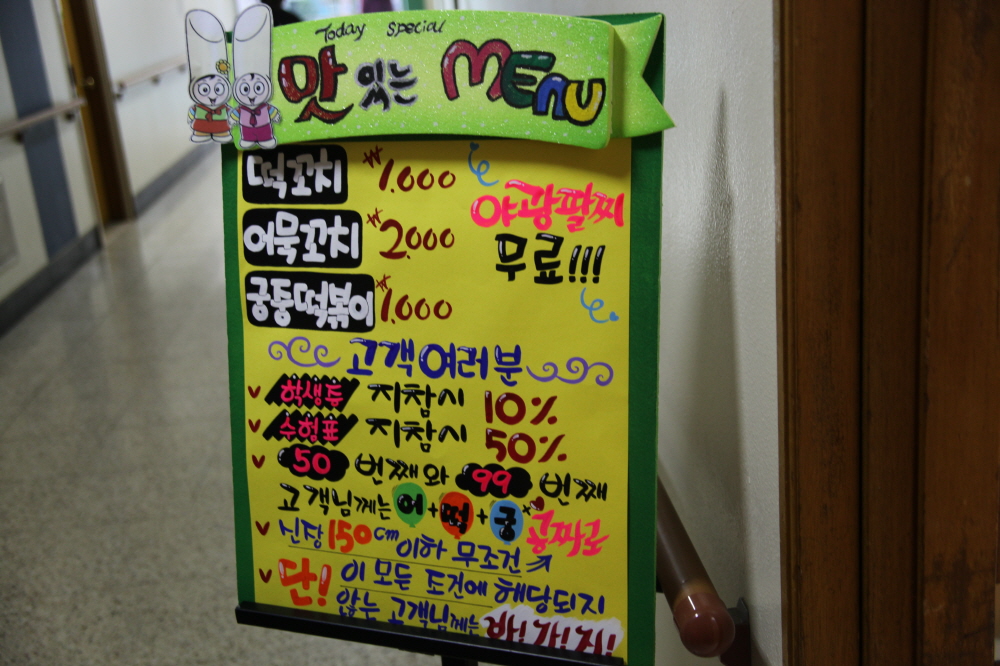 Today special
맛 있는 MENU
떡꼬치 ₩1.000
어묵꼬치 ₩2.000
궁중떡볶이 ₩1.000
야광팔찌
무료!!!
고객여러분
학생증 지참시 10%
수험표 지참시 50%
50 번째와 99 번째
고객님께는 어+떡+궁 공짜로
신장 150cm 이하 무조건
단! 이 모든 조건에 해당되지
않는 고객님께는 바!가!지!